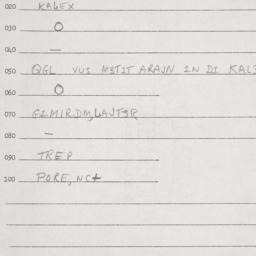 020 KALEX
030 O
040 —
050 QGL VUS MƏTIT ARAJN IN DI KAL
060 O
070
080 —
090 TREP
100 PORE, NC+